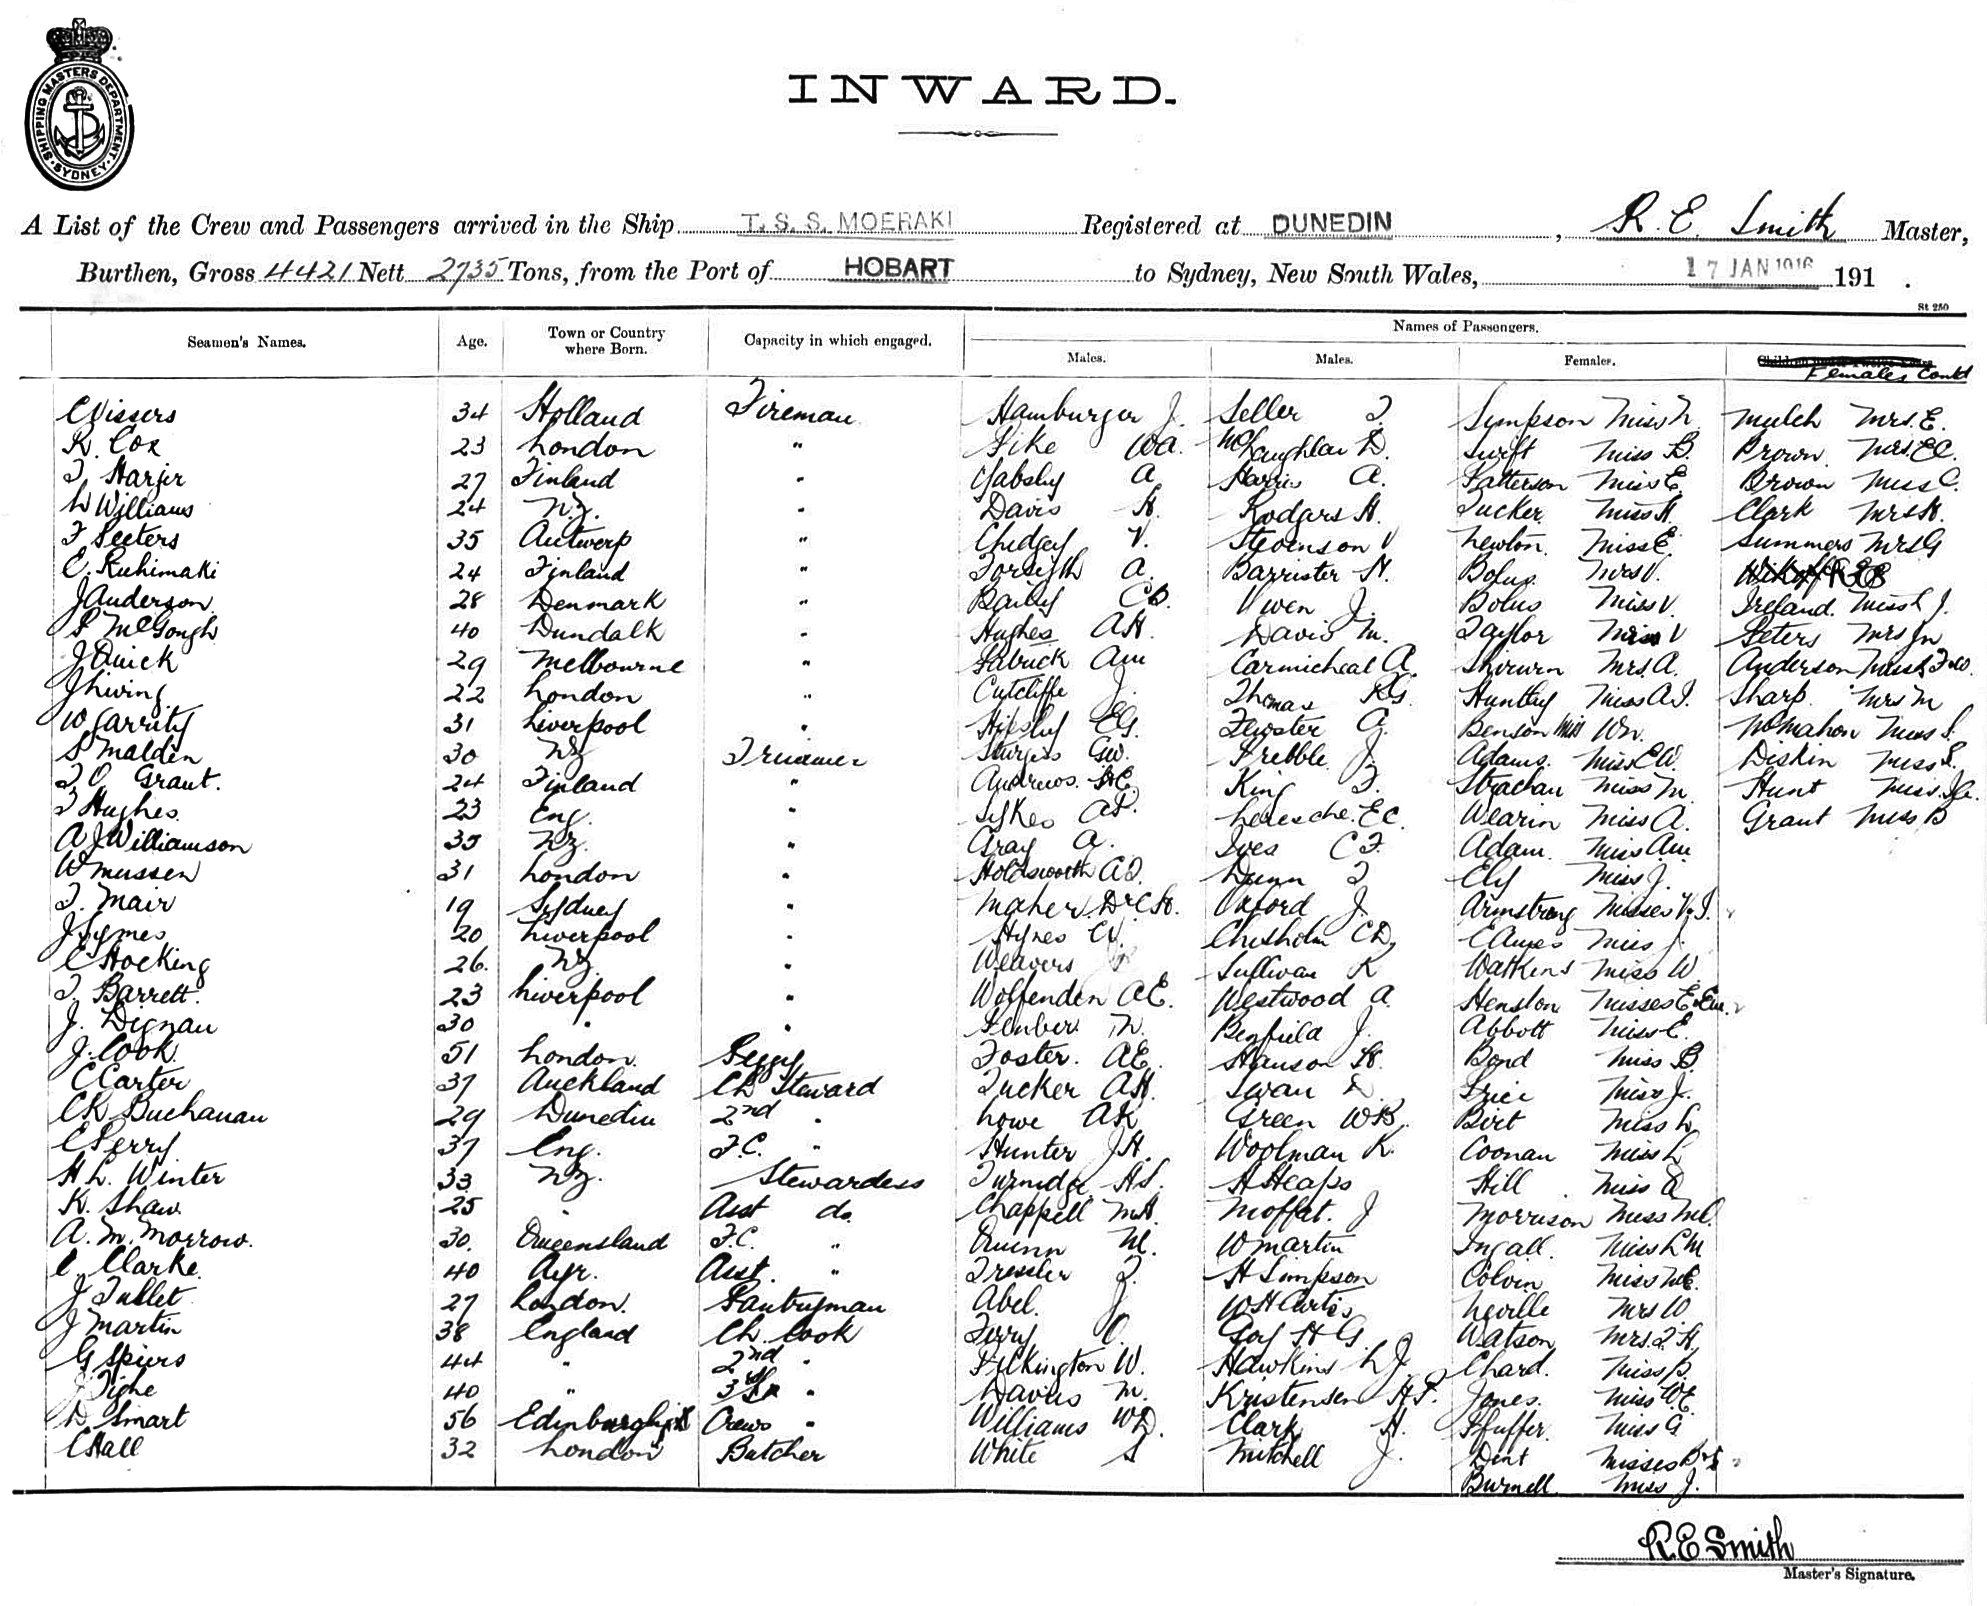 SHIPPING MASTERS DEPARTMENT
SYDNEY
INWARD.
A List of the Crew and Passengers arrived in the Ship T. S. S. MOERAKI Registered at DUNEDIN, R. E. Smith Master,
Burthen, Gross 4421 Nett 2735 Tons, from the Port of HOBART to Sydney, New South Wales, 17 JAN 1916 191 .
St 250
Seamen's Names. Age. Town or Country where Born. Capacity in which engaged. Names of Passengers.
Males. Males. Females. Females Contd
C Vissers 34 Holland Fireman Hamburger J. Seller F. Simpson Miss N. Mulch Mrs. E.
R. Cox 23 London " Pike WA. McLaughlan D. Swift Miss B. Brown Mrs. EC.
T Harjir 27 Finland " Yabsley A Harris A. Patterson Miss E. Brown Miss C.
W Williams 24 N.Z. " Davis H. Rodgers H. Tucker Miss H. Clark Mrs H.
F Peeters 35 Antwerp " Chidgey V. Stevenson V Newton. Miss E. Summers Mrs G
E. Ruhimaki 24 Finland " Forsyth A. Barrister H. Bolus Mrs V.
J Anderson 28 Denmark " Bailey CB. Owen J. Bolus Miss V. Ireland. Miss L J.
P McGough 40 Dundalk " Hughes AH. Davis M. Taylor Miss V Peters Mrs Jn
J Quick 29 Melbourne " Patrick AM Carmicheal A. Mrs. A. Anderson
J Living 22 London " Cutcliffe J. Thomas RG. Huntley Miss A.I. Sharp Mrs M
W Garrity 31 Liverpool " Hipsley EG. Fewster G. Benson Miss Wn. McMahon Miss S.
S Malden 30 NZ Trimmer Sturgess GW. Prebble J. Adams. Miss EW. Diskin Miss L.
T O Grant. 24 Finland " Andrews. HE. King F. Strachan Miss M. Hunt Miss
T Hughes. 23 Eng. " Sykes AP. EC. Wearin Miss A. Grant Miss B
A J Williamson 35 NZ. " Gray A. Ives CF. Adam. Miss AM.
W Mussen 31 London " Holdsworth AD. Dunn T Ely Miss J.
T. Mair 19 Sydney " Maher. Dr C H. Oxford J. Armstrong Misses V. I.
J Symes 20 Liverpool " Hynes CV. Chisholm CD. Miss J.
C Hocking 26. NZ. " Weavers Sullivan R Watkins Miss W.
T. Barrett. 23 Liverpool " Wolfenden AE. Westwood A. Henslon Misses
J. Dignan 30 " " M. Benfield J. Abbott Miss E.
J. Cook 51 London. Peggy Foster. AE. Hanson H. Bond Miss B.
C Carter 37 Auckland Ch Steward Tucker AH. Swan D. Price Miss J.
CR Buchanan 29 Dunedin 2nd " Lowe AK Green WB. Birt Miss L.
C Perry 37 Eng. F.C. " Hunter JH. Woolman K. Coonan Miss L
H L. Winter 33 NZ. Stewardess Turnidge HS. H Heaps Hill Miss A
K. Shaw 25 " Asst do. Chappell MH. Moffat. J Morrison Miss
A. M. Morrow. 30. Queensland F.C. " Quinn M. W Martin Ingall. Miss L M
C Clarke 40 Ayr. Asst. " Tressler F. H Simpson Colvin Miss ME.
J Tullet 27 London. Pantryman Abel. J W H Curtis Neville Mrs W
J Martin 38 England Ch. Cook Terry C. Goy H G. Watson Mrs. F. H.
G Spiers 44 " 2nd " Pilkington W. Hawkins L J. Chard. Miss B.
J Tighe 40 " 3rd " Davies M. Kristensen H P. Jones. Miss WE
D Smart 56 Edinburgh Crews " Williams WD. Clark H. Pfuffer. Miss G
C Hall 32 London Butcher White S Mitchell J. Dent Misses
Burnell Miss J.
R E Smith
Master's Signature.